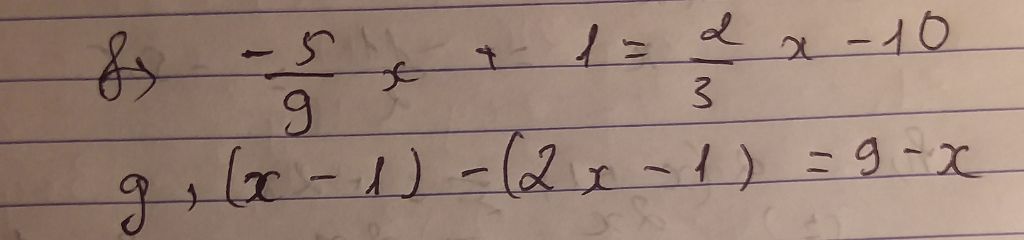 f) -5/9 x + 1 = 2/3 x - 10
g, (x - 1) - (2x - 1) = 9 - x